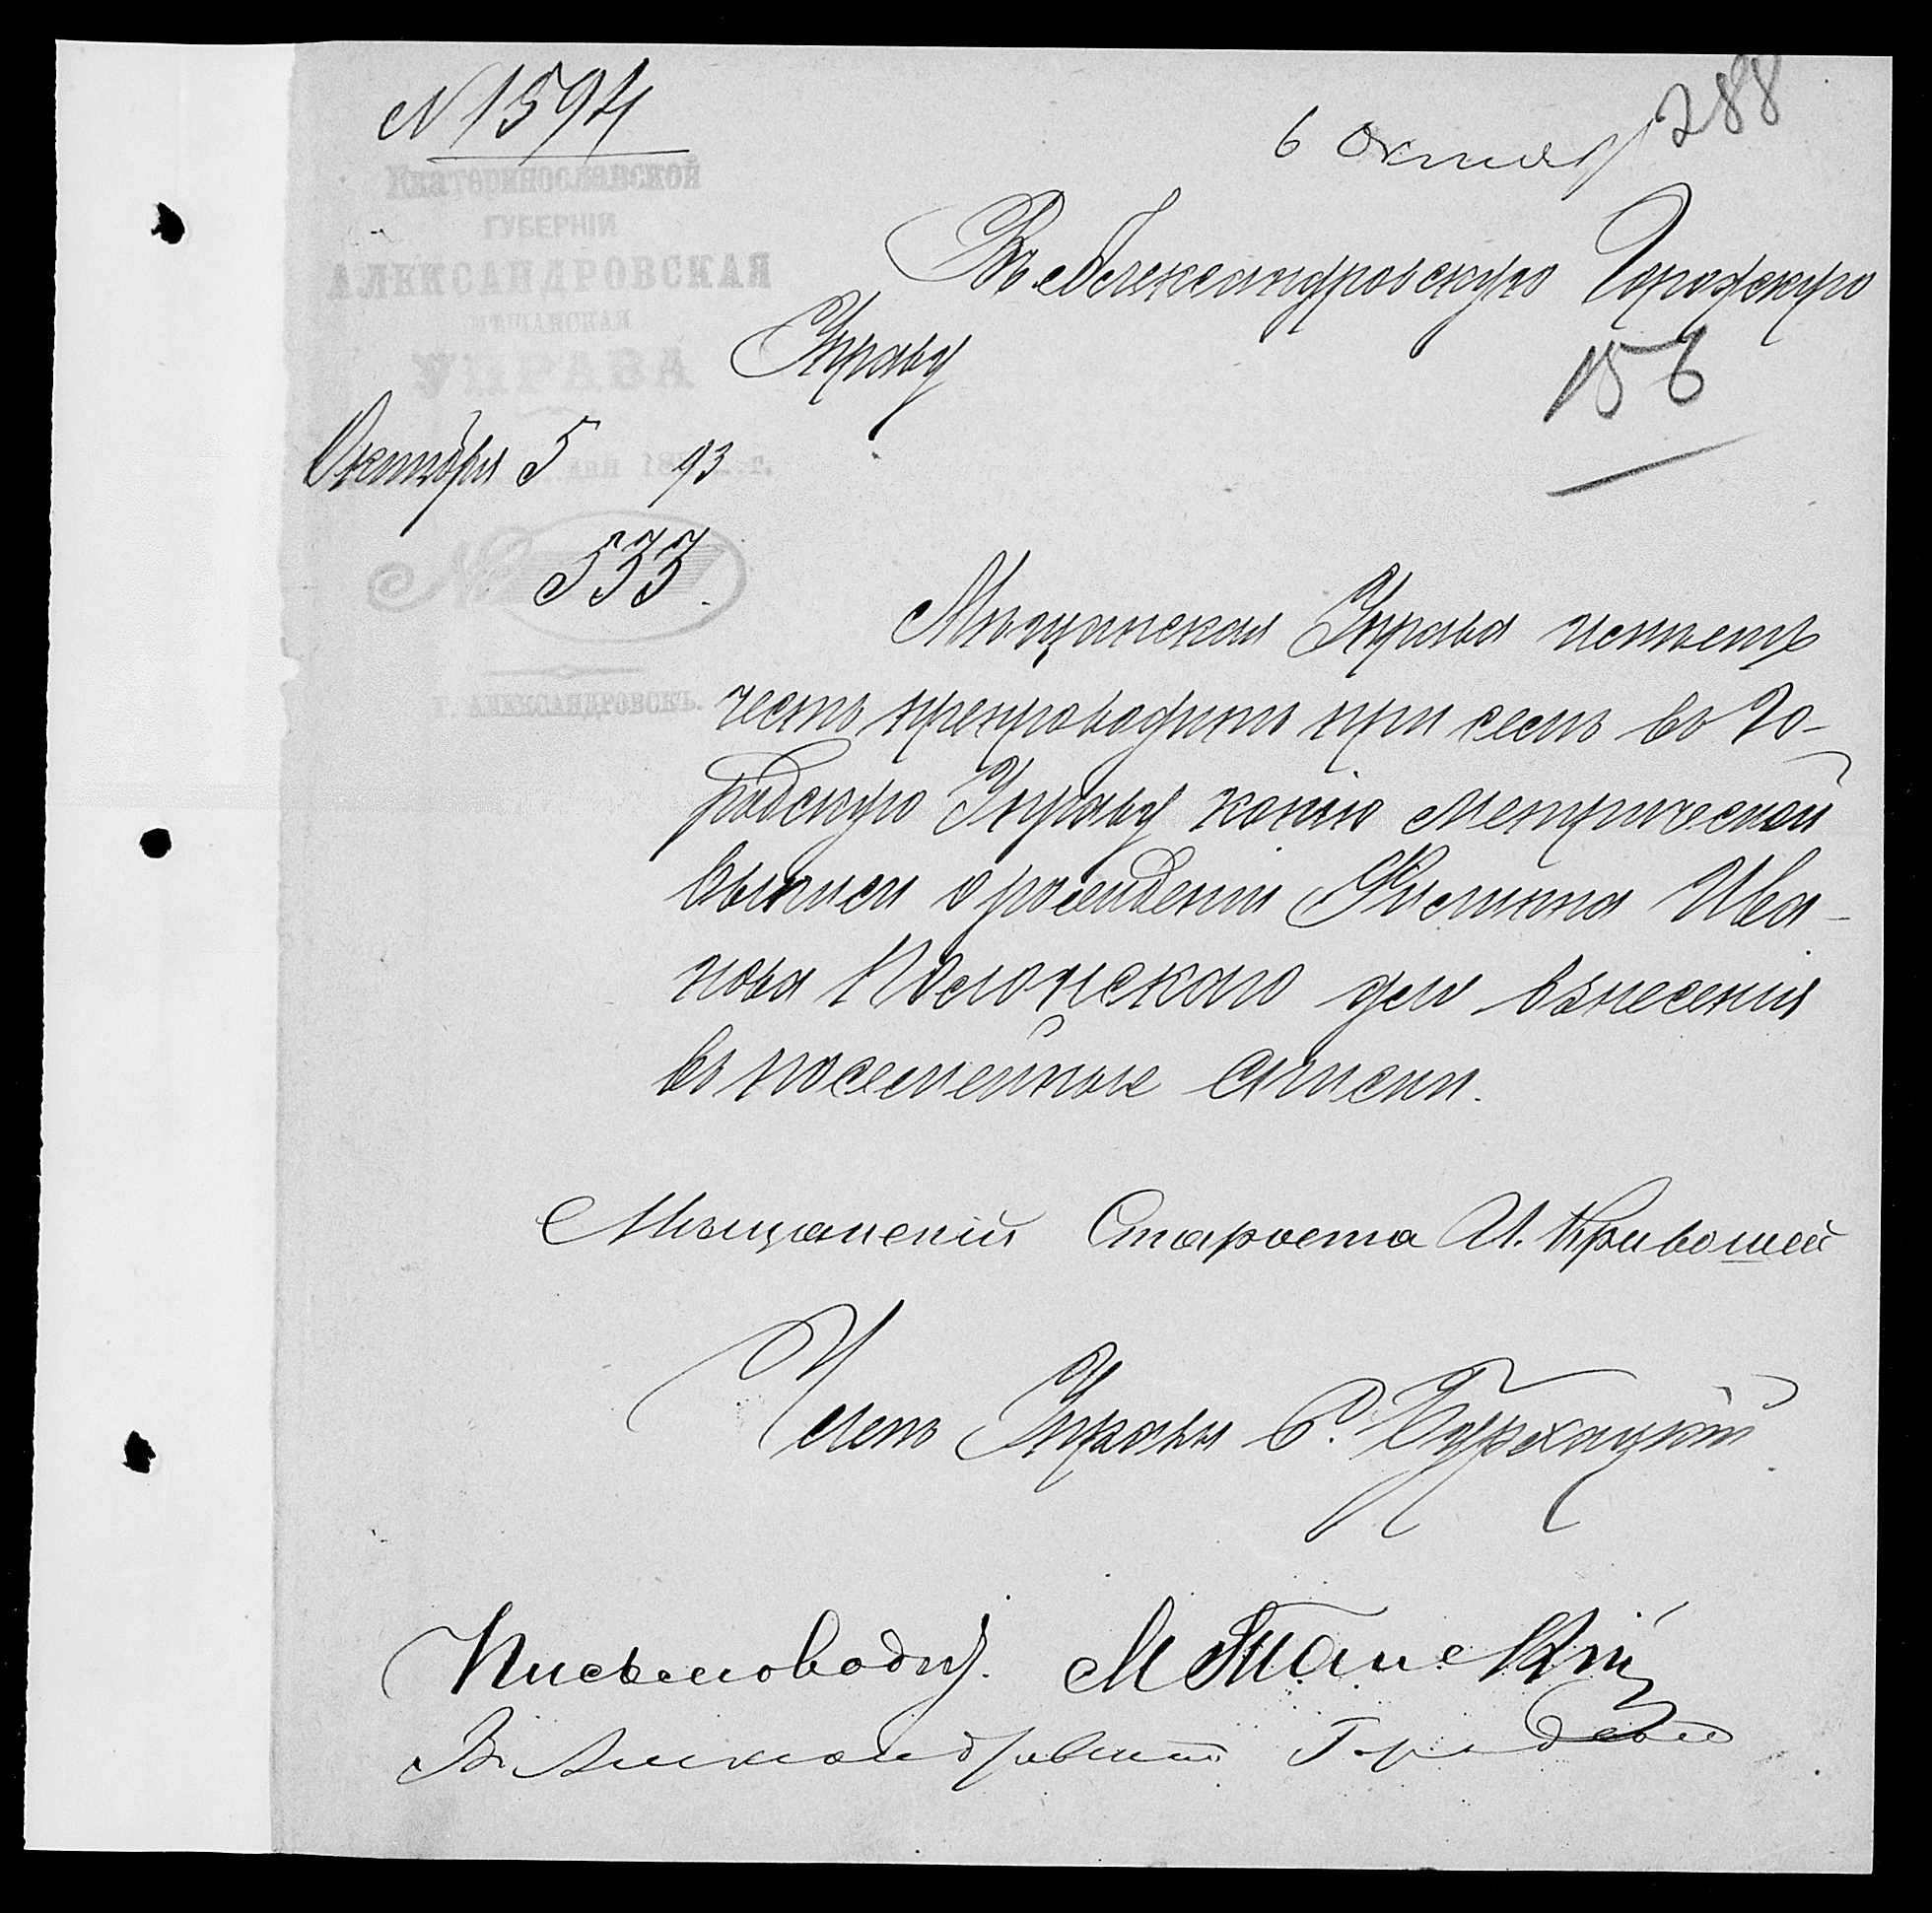 N 1594
288
6 Октяб
Екатеринославской
ГУБЕРНІИ
АЛЕКСАНДРОВСКАЯ
МѢЩАНСКАЯ
УПРАВА
Октября 5 дня 1893 г.
№ 533.
Г. АЛЕКСАНДРОВСКЪ.
Въ Александровскую Городскую
Управу
156
Мѣщанская Управа имѣетъ
честь препроводить при семъ въ Го-
родскую Управу копію метрической
выписи о рожденіи Филиппа Ива-
нова Полонскаго для внесенія
въ посемейные списки.
Мѣщанскій Староста И. Кривошей
Членъ Управы
Письмоводит.